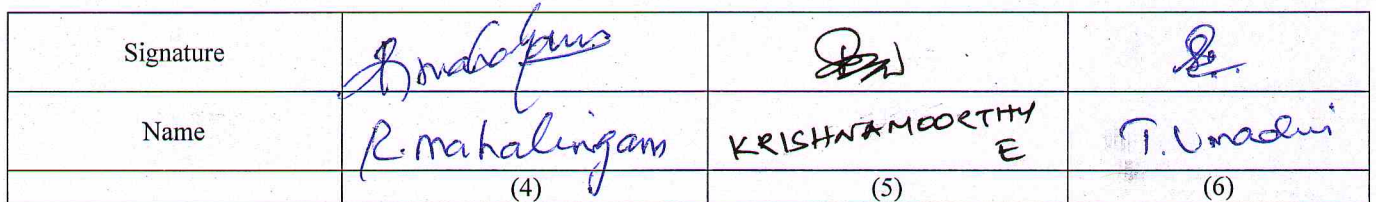 Signature
Name R. mahalingam KRISHNAMOORTHY
E T. Umadevi
(4) (5) (6)